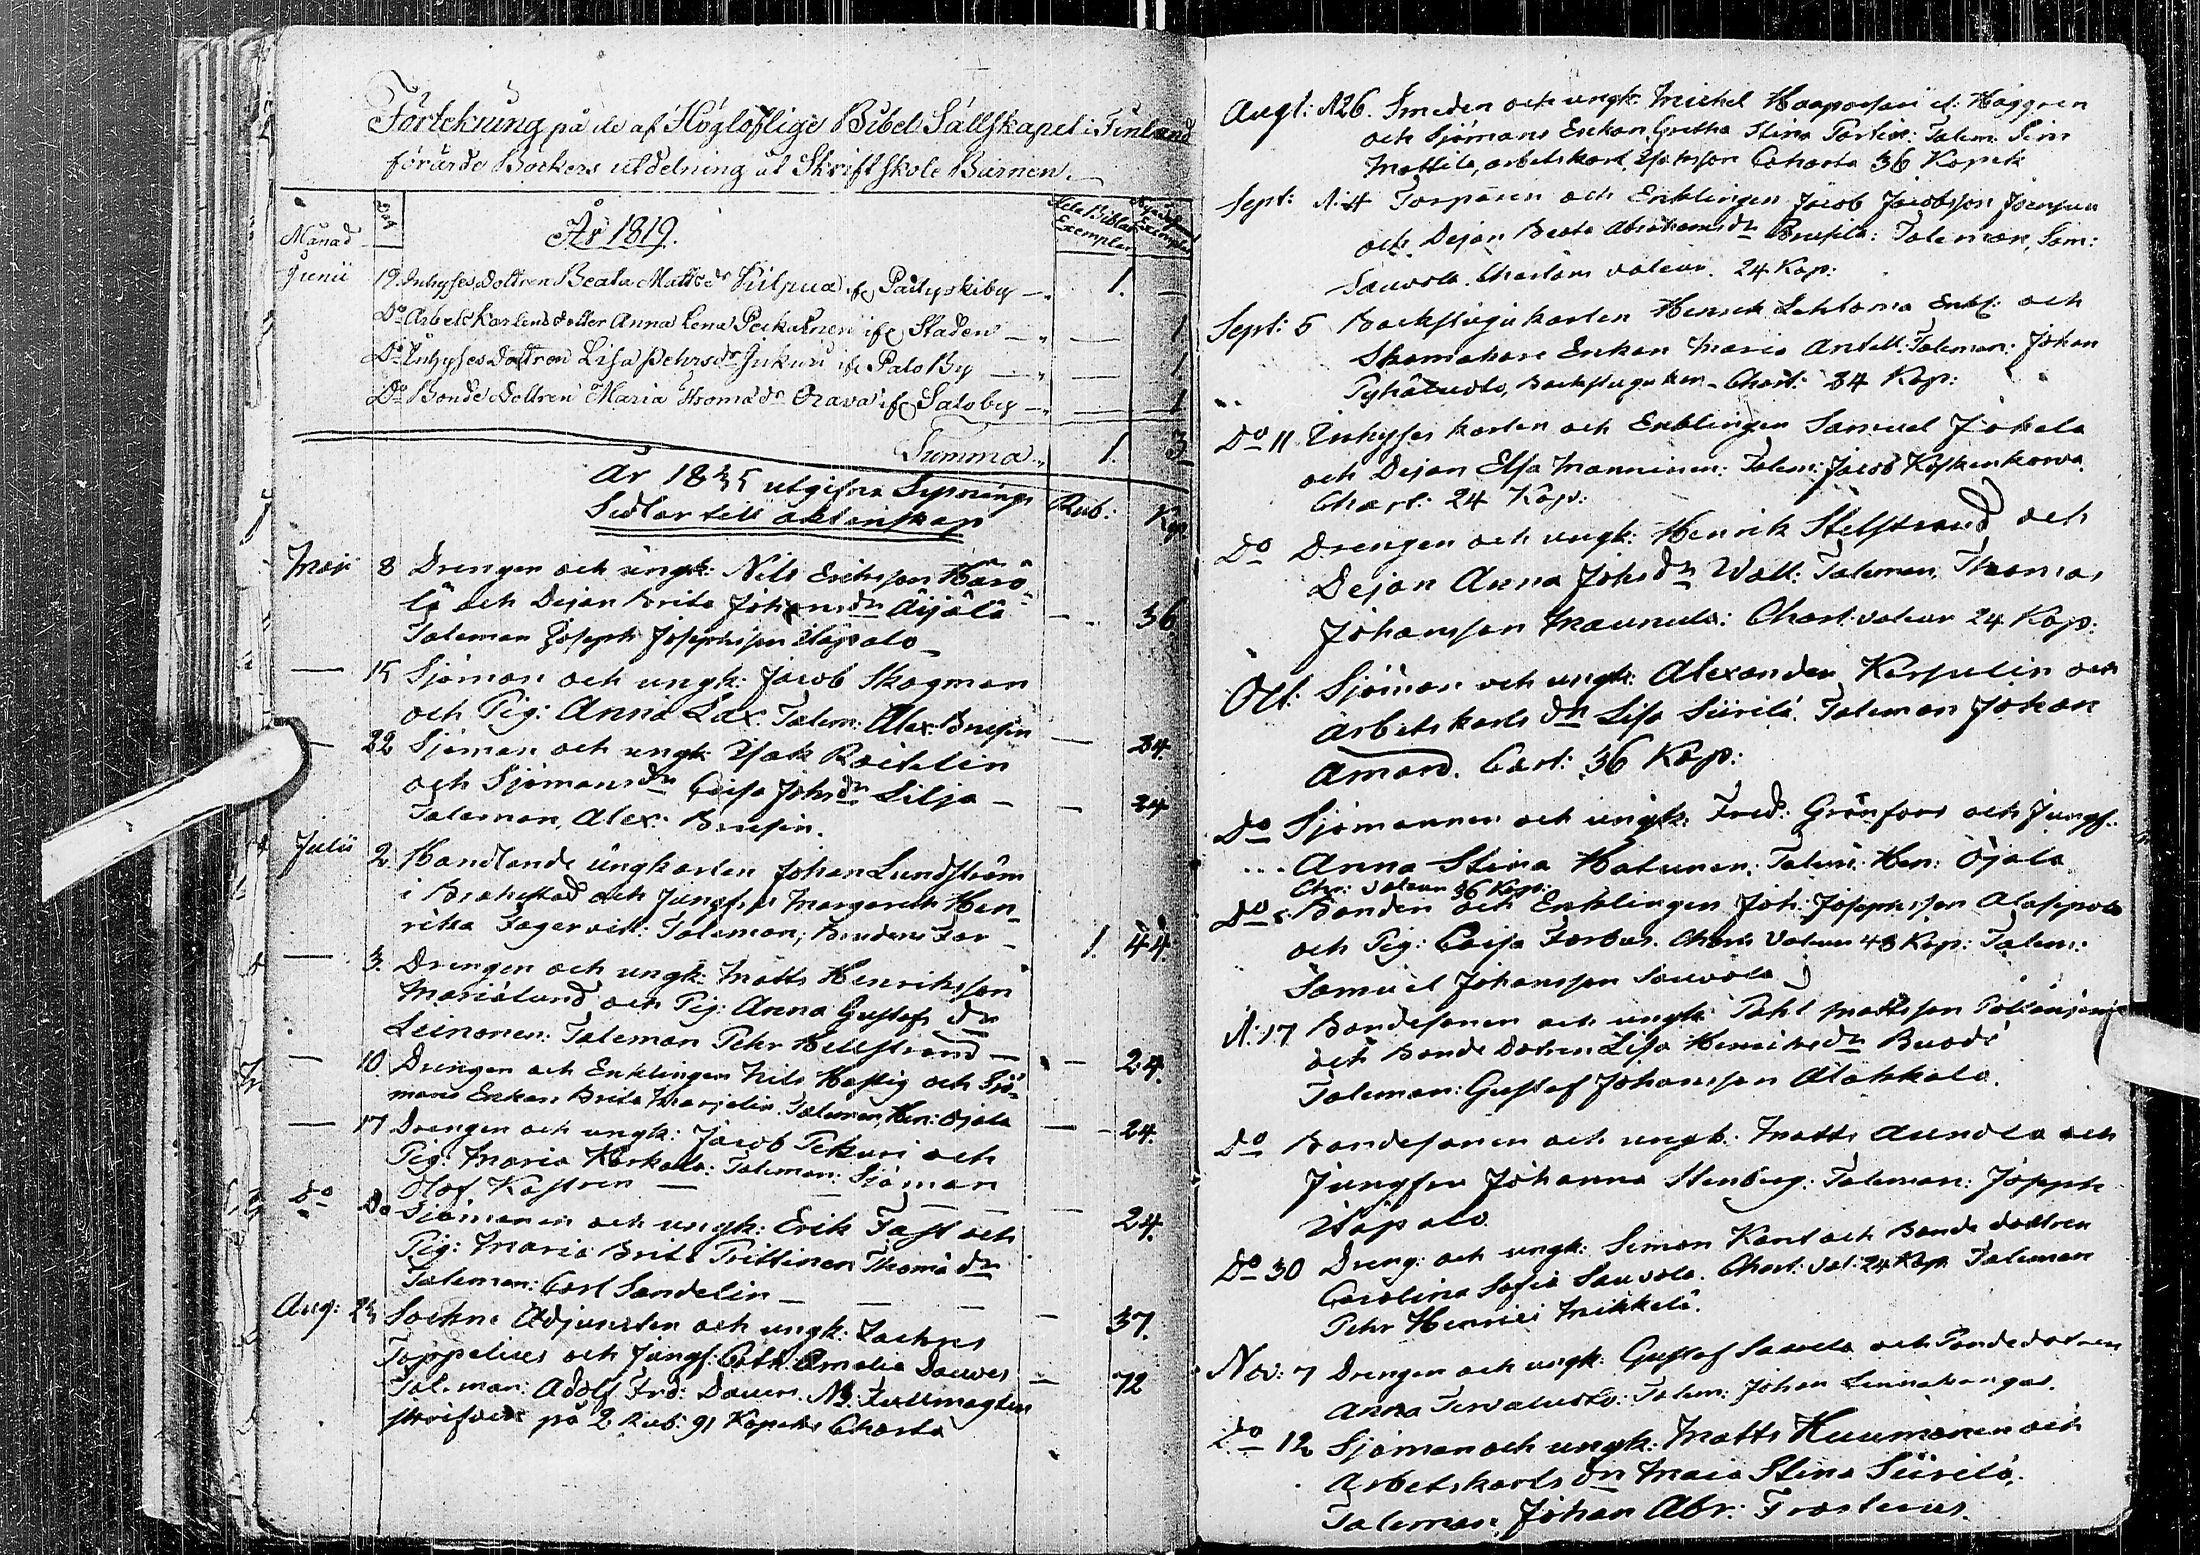 Förtekning på de af Högloflige Bibel Sällskapet i Finland
förärde Böckers utdelning åt Skriftskole Barnen.
Månad Dag År 1819. Hela Biblar Exemplar Exemplar
Junii 19. Inhyses Dottren Beata Matts dr if Pattyokiby 1. —
Do Arbets Karlens dotter Anna Lena if Staden — 1
Do Inhyses Dottren Lisa Pehrs dr if Palo By — 1
Do Bonde Dottren Maria Thomæ dr Orava if Saloby — 1
Summa 1. 3
År 1835 utgifne Lysnings
Sedlar till äktenskap Rub: Kop.
Maji 8 Drengen och ungk: Nils Ericksson
och Dejan Brita Johans dr Äijälä — 36.
Taleman Joseph Josephsson
— 15 Sjöman och ungk: Jacob Skogman
och Pig: Anna Lax. Talem: Alex: Brusin — 24.
— 22 Sjöman och ungk
och Sjömans dr Caisa Johs dr Lilja — 24
Taleman, Alex: Brusin.
Julii 2. Handlande ungkarlen Johan Lundström
i Brahestad och Jungfru Margareth Hen-
rika Fagervik: Taleman; Brudens Far 1. 44.
— 3. Drengen och ungk: Matts Henriksson
Marielund och Pig: Anna Gustafs dr
Leinonen: Taleman Pehr Hellstrand — 24.
— 10 Drengen och Enklingen Nils Hastig och Sjö-
mans Enkan Brita Marjelin. Taleman, Hen: Ojala — 24.
— 17 Drengen och ungk: Jacob Pekuri och
Pig: Maria Taleman: Sjöman
Olof Kastren — 24.
Do Do Sjömanen och ungk: Erik Fast och
Pig: Maria Brita Prittinen Thomæ dr
Taleman: Carl Sandelin — 37.
Aug: 23 Sockne Adjuncten och ungk: Zachris
Toppelius och Jungf: Cath: Amalia Dauves — 72
Taleman: Adolf Frd: Dauver. NB: Fullmagten
skrifven på 2 Rub: 91 Kopeks Charta
Augt: N26. Smeden och ungk: Michel el: Häggren
och Sjömans Enkan Gretha Stina Portin: Talem: Sim
Mattila, arbetskarl, Charta 36 Kopek
Sept: N:4 Torparen och Enklingen Jacob Jacobsson
och Dejan Beata Abrahams dr Taleman, Sam:
Sauvola. Chartans valeur. 24 Kop:
Sept: 5 Backstugukarlen Henrik Lehtoma Enkl: och
Skomakare Enkan Maria Antell. Taleman: Johan
Pyhäluoto, Chart: 24 Kop:
Do 11 Inhyses karlen och Enklingen Samuel Jokela
och Dejan Elsa Manninen: Talem: Jacob Koskenkorva.
Chart: 24 Kop:
Do Drengen och ungk: Henrik Stelstrand och
Dejan Anna Johs dr Wall: Taleman, Thomas
Johansson Maunula: Chart: valeur 24 Kop:
Oct: Sjöman och ungk: Alexander Karpelin och
arbetskarls dr Lisa Siirilä. Taleman Johan
Aman. Cart: 36 Kop:
Do Sjömannen och ungk: Fred: Grönfors och Jungf:
Anna Stina Hatunen: Talem: Hen: Ojala
Chr: valeur 36 Kop:
Do Bonden och Enklingen Joh: Josephsson Alasippola
och Pig: Caisa Forbus. Charts Valeur 48 Kop: Talem:
Samuel Johansson Sauvola
N:17 Bondesonen och ungk: Pähl Mattsson
och Bonde Dotren Lisa Henriks dr
Taleman: Gustaf Johansson Alakkala.
Do Bondesonen och ungk: Matts Aunola och
Jungfru Johanna Stenberg: Taleman: Joseph

Do 30 Dreng: och ungk: Simon Kant och Bonde dottren
Carolina Sofia Sauvola. Chart: Val: 24 Kop Taleman
Pehr Henrici Mikkelä.
Nov: 7 Drengen och ungk: Gustaf Sauvola och Bondedotren
Anna Tervaluoto: Talem: Johan Linnakangas.
Do 12 Sjöman och ungk: Matts Huumonen och
Arbetskarls dr Maia Stina Siirilä.
Taleman: Johan Abr: Frosterus.